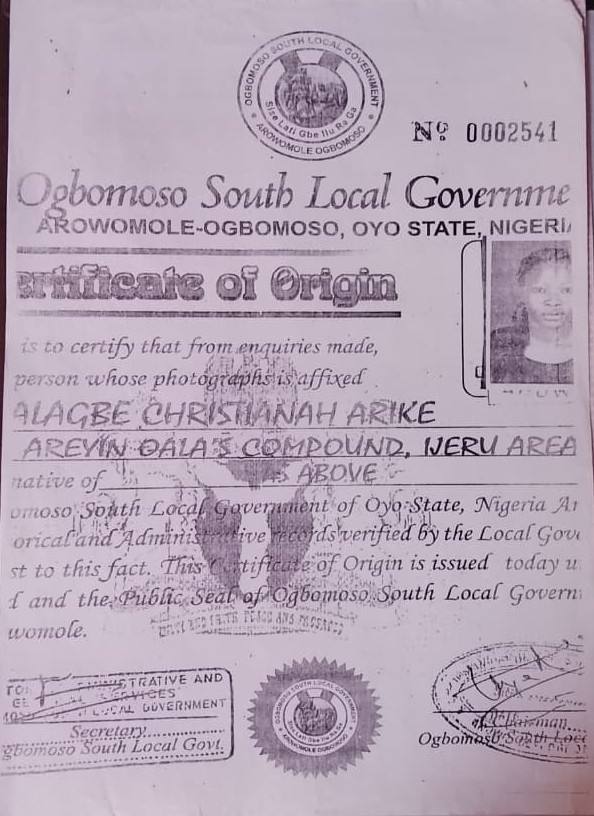 OGBOMOSO SOUTH LOCAL GOVERNMENT
Size Lati Gbe Ilu Ra Ga
AROWOMOLE OGBOMOSO
Nº 0002541
Ogbomoso South Local Governme
AROWOMOLE-OGBOMOSO, OYO STATE, NIGERIA
ertificate of Origin
is to certify that from enquiries made,
person whose photographs is affixed
ALAGBE CHRISTIANAH ARIKE
AREYIN OALA'S COMPOUND, IJERU AREA
native of AS ABOVE
omoso South Local Government of Oyo State, Nigeria An
orical and Administrative records verified by the Local Gove
st to this fact. This Certificate of Origin is issued today u
d and the Public Seal of Ogbomoso South Local Govern
womole.
UNITY AND FAITH, PEACE AND PROGRESS
STRATIVE AND
SERVICES
LOCAL GOVERNMENT
Secretary
gbomoso South Local Govt.
OGBOMOSO SOUTH LOCAL GOVERNMENT
Size Lati Gbe Ilu Ra Ga
AROWOMOLE OGBOMOSO
Chairman
Ogbomoso South Loc